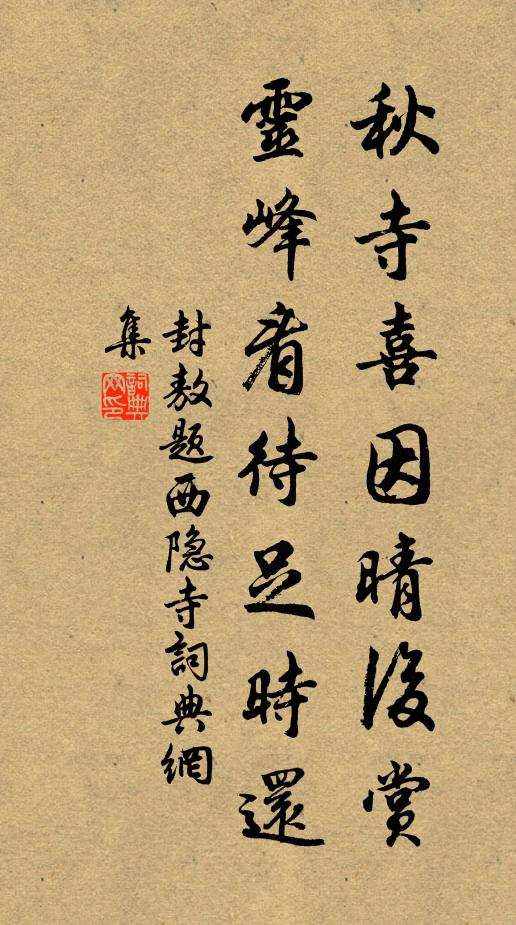 秋寺喜因晴後賞
靈峰看待足時還
封敖題西隐寺詞典網
集
詞典網印